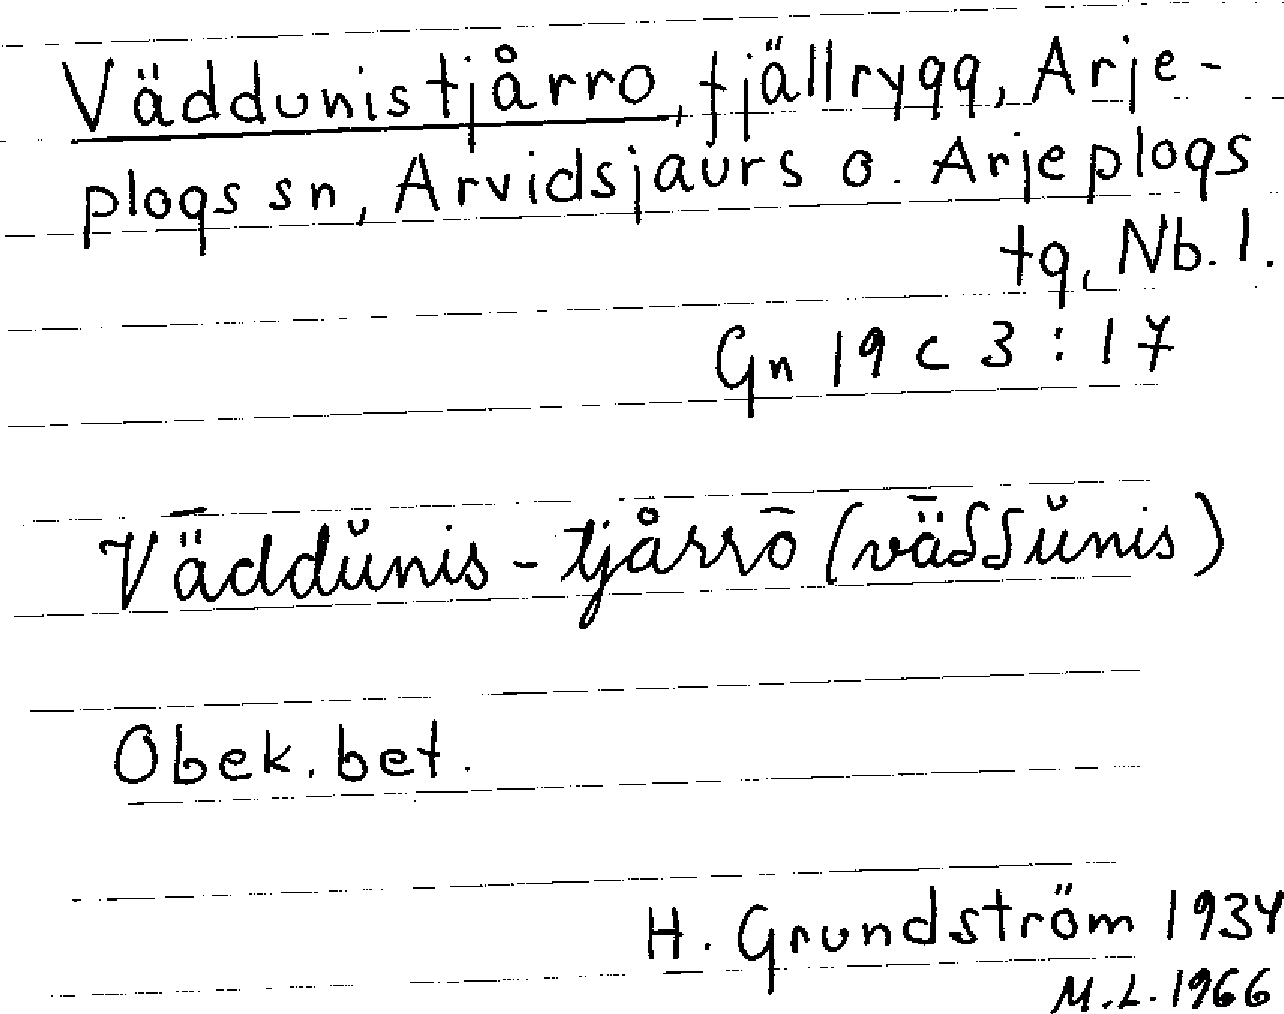 Väddunistjårro, fjällrygg, Arje-
plogs sn, Arvidsjaurs o. Arjeplogs
tg, Nb. l.
Gn 19 c 3 : 17
Vǟddŭnis - tjårrō (vǟδδŭnis)
Obek. bet.
H. Grundström 1934
M.L. 1966